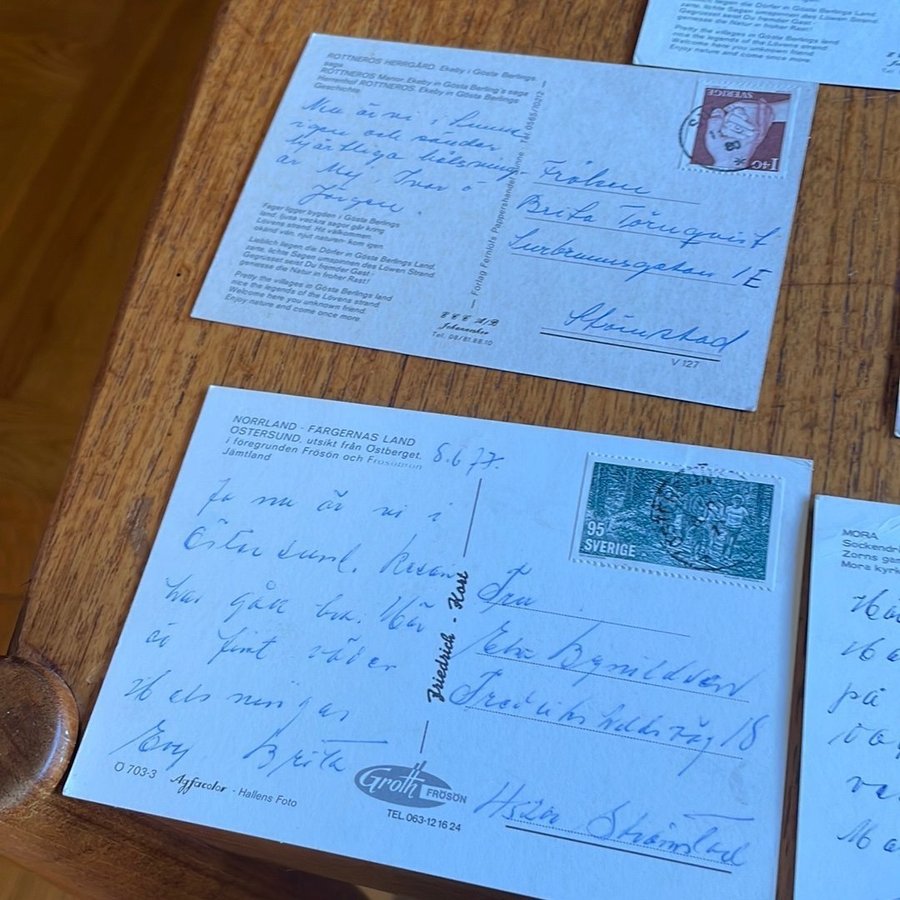 Gegrüsset seist Du fremder Gast
genniesse die Natur in froher Rast!
Pretty the villages in Gösta Berlings land
nice the legends of the Lövens strand
Welcome here you unknown friend.
Enjoy nature and come once more.
ROTTNEROS HERRGÅRD. Ekeby i Gösta Berlings
saga
ROTTNEROS Manor. Ekeby in Gösta Berling's saga
Herrenhof ROTTNEROS. Ekeby in Gösta Berlings
Geschichte
Nu är vi i Sunne
igen och sänder
hjärtliga hälsningar
Maj, Ivar o
Jörgen.
Fager ligger bygden i Gösta Berlings
land, ljusa vackra sagor går kring
Lövens strand. Hit välkommen
okänd vän, njut naturen- kom igen
Lieblich liegen die Dörfer in Gösta Berlings Land
zarte, lichte Sagen umspannen des Löwen Strand
Gegrüsset seist Du fremder Gast
geniesse die Natur in froher Rast!
Pretty the villages in Gösta Berlings land
nice the legends of the Lövens strand
Welcome here you unknown friend.
Enjoy nature and come once more.
Förlag Fernlöfs Pappershandel Sunne Tel. 0565/10212
Tel. 08/81.88.10
SVERIGE
1.40
Fröken
Brita Törnqvist
Surbrunnsgatan 1E
Strömstad
V 127
NORRLAND - FÄRGERNAS LAND
ÖSTERSUND, utsikt från Östberget,
i föregrunden Frösön och Frösöbron
Jämtland
8.6.77.
Ja nu är vi i
Östersund. Resan
har gått bra. Här
är fint väder
Hälsningar
Evy Brita
O 703-3 Agfacolor - Hallens Foto
Friedrich - Kost
Groth FRÖSÖN
TEL. 063-12 16 24
95
SVERIGE
Fru
Fredrikshaldsväg 18
45200 Strömstad
MORA